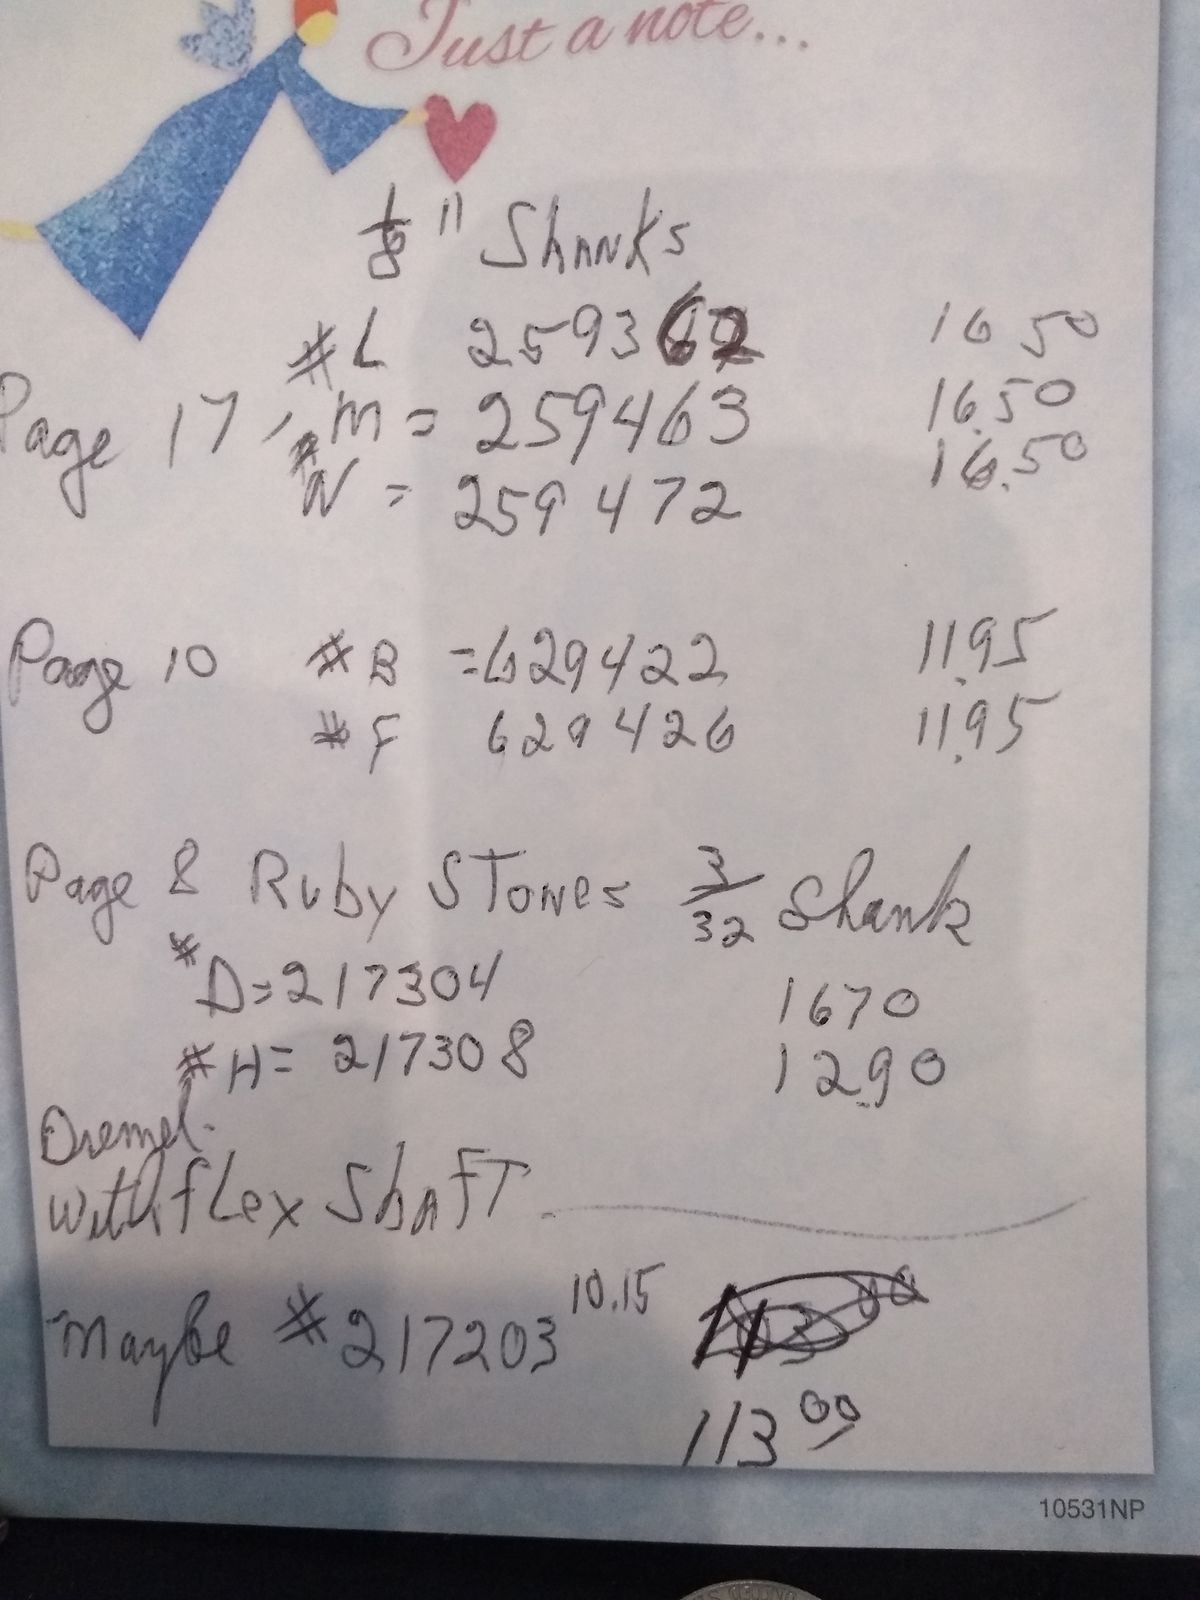 Just a note...
1/8" Shanks
#L 259362 16 50
Page 17, #M = 259463 16.50
#N = 259472 16.50
Page 10 #B = 629422 11.95
#F 629426 11.95
Page 8 Ruby Stones 3/32 Shank
#D=217304 1670
#H= 217308 12.90
Dremel.
With flex Shaft
Maybe #217203 10.15
113 00
10531NP